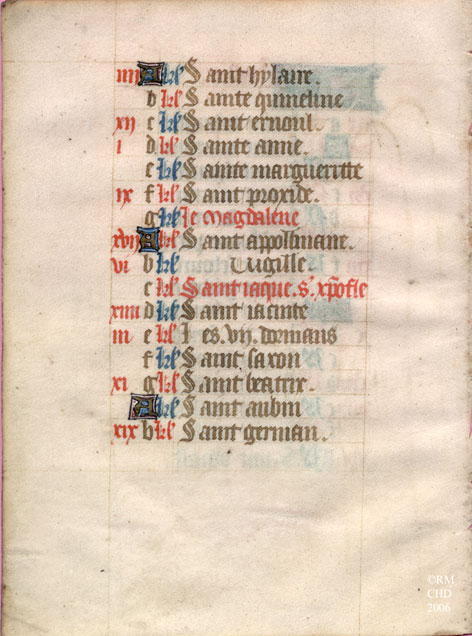 iiii A kl Saint hylaire.
b kl Sainte quineline
xii c kl Saint ernoul.
i d kl Sainte anne.
e kl Sainte margueritte
ix f kl Saint proxide.
g kl Le magdalene
xvii A kl Saint appolinaire.
vi b kl Vigille
c kl Saint iaque. s. xpofle
xiiii d kl Saint iacinte
iii e kl Les. vii. domans
f kl Saint saxon
xi g kl Saint beatrix.
A kl Saint aubin
xix b kl Saint german.
©RM
CHD
2006